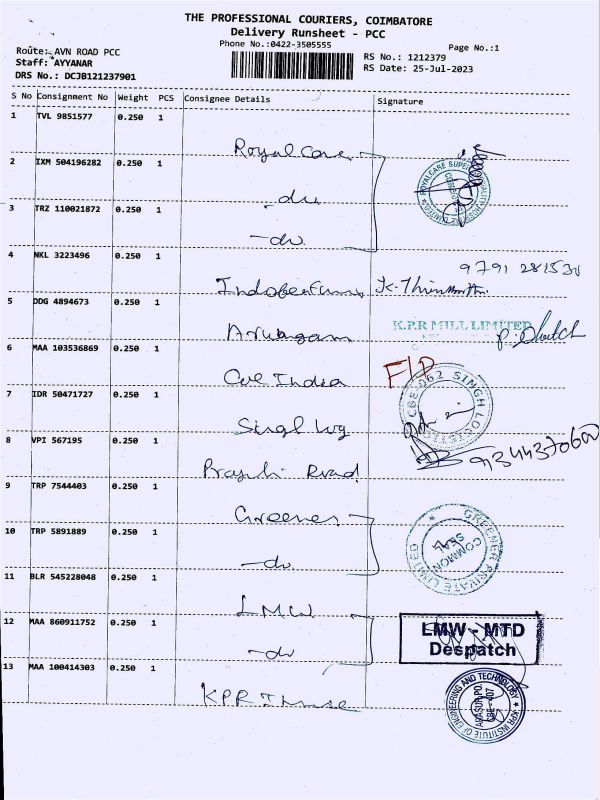 THE PROFESSIONAL COURIERS, COIMBATORE
Delivery Runsheet - PCC
Phone No.:0422-3505555
Page No.:1
Route: AVN ROAD PCC
Staff: AYYANAR
DRS No.: DCJB121237901
RS No.: 1212379
RS Date: 25-Jul-2023
S No Consignment No Weight PCS Consignee Details Signature
1 TVL 9851577 0.250 1
Royal Care
2 IXM 504196282 0.250 1
-do
3 TRZ 110021872 0.250 1
-do
4 NKL 3223496 0.250 1
9791 281530
5 DDG 4894673 0.250 1
K.P.R MILL LIMITED
6 MAA 103536869 0.250 1
India
F/D
7 IDR 50471727 0.250 1
CBE-062 SINGH LOGISTICS
8 VPI 567195 0.250 1
Road
9 TRP 7544403 0.250 1
Greener
10 TRP 5891889 0.250 1
-do
GREENER PRIVATE LIMITED
COMMON SEAL
11 BLR 545228048 0.250 1
LMW
12 MAA 860911752 0.250 1
-do
LMW - MTD
Despatch
13 MAA 100414303 0.250 1
KPR
KPR INSTITUTE OF ENGINEERING AND TECHNOLOGY
ARASUR PO.
CBE-407